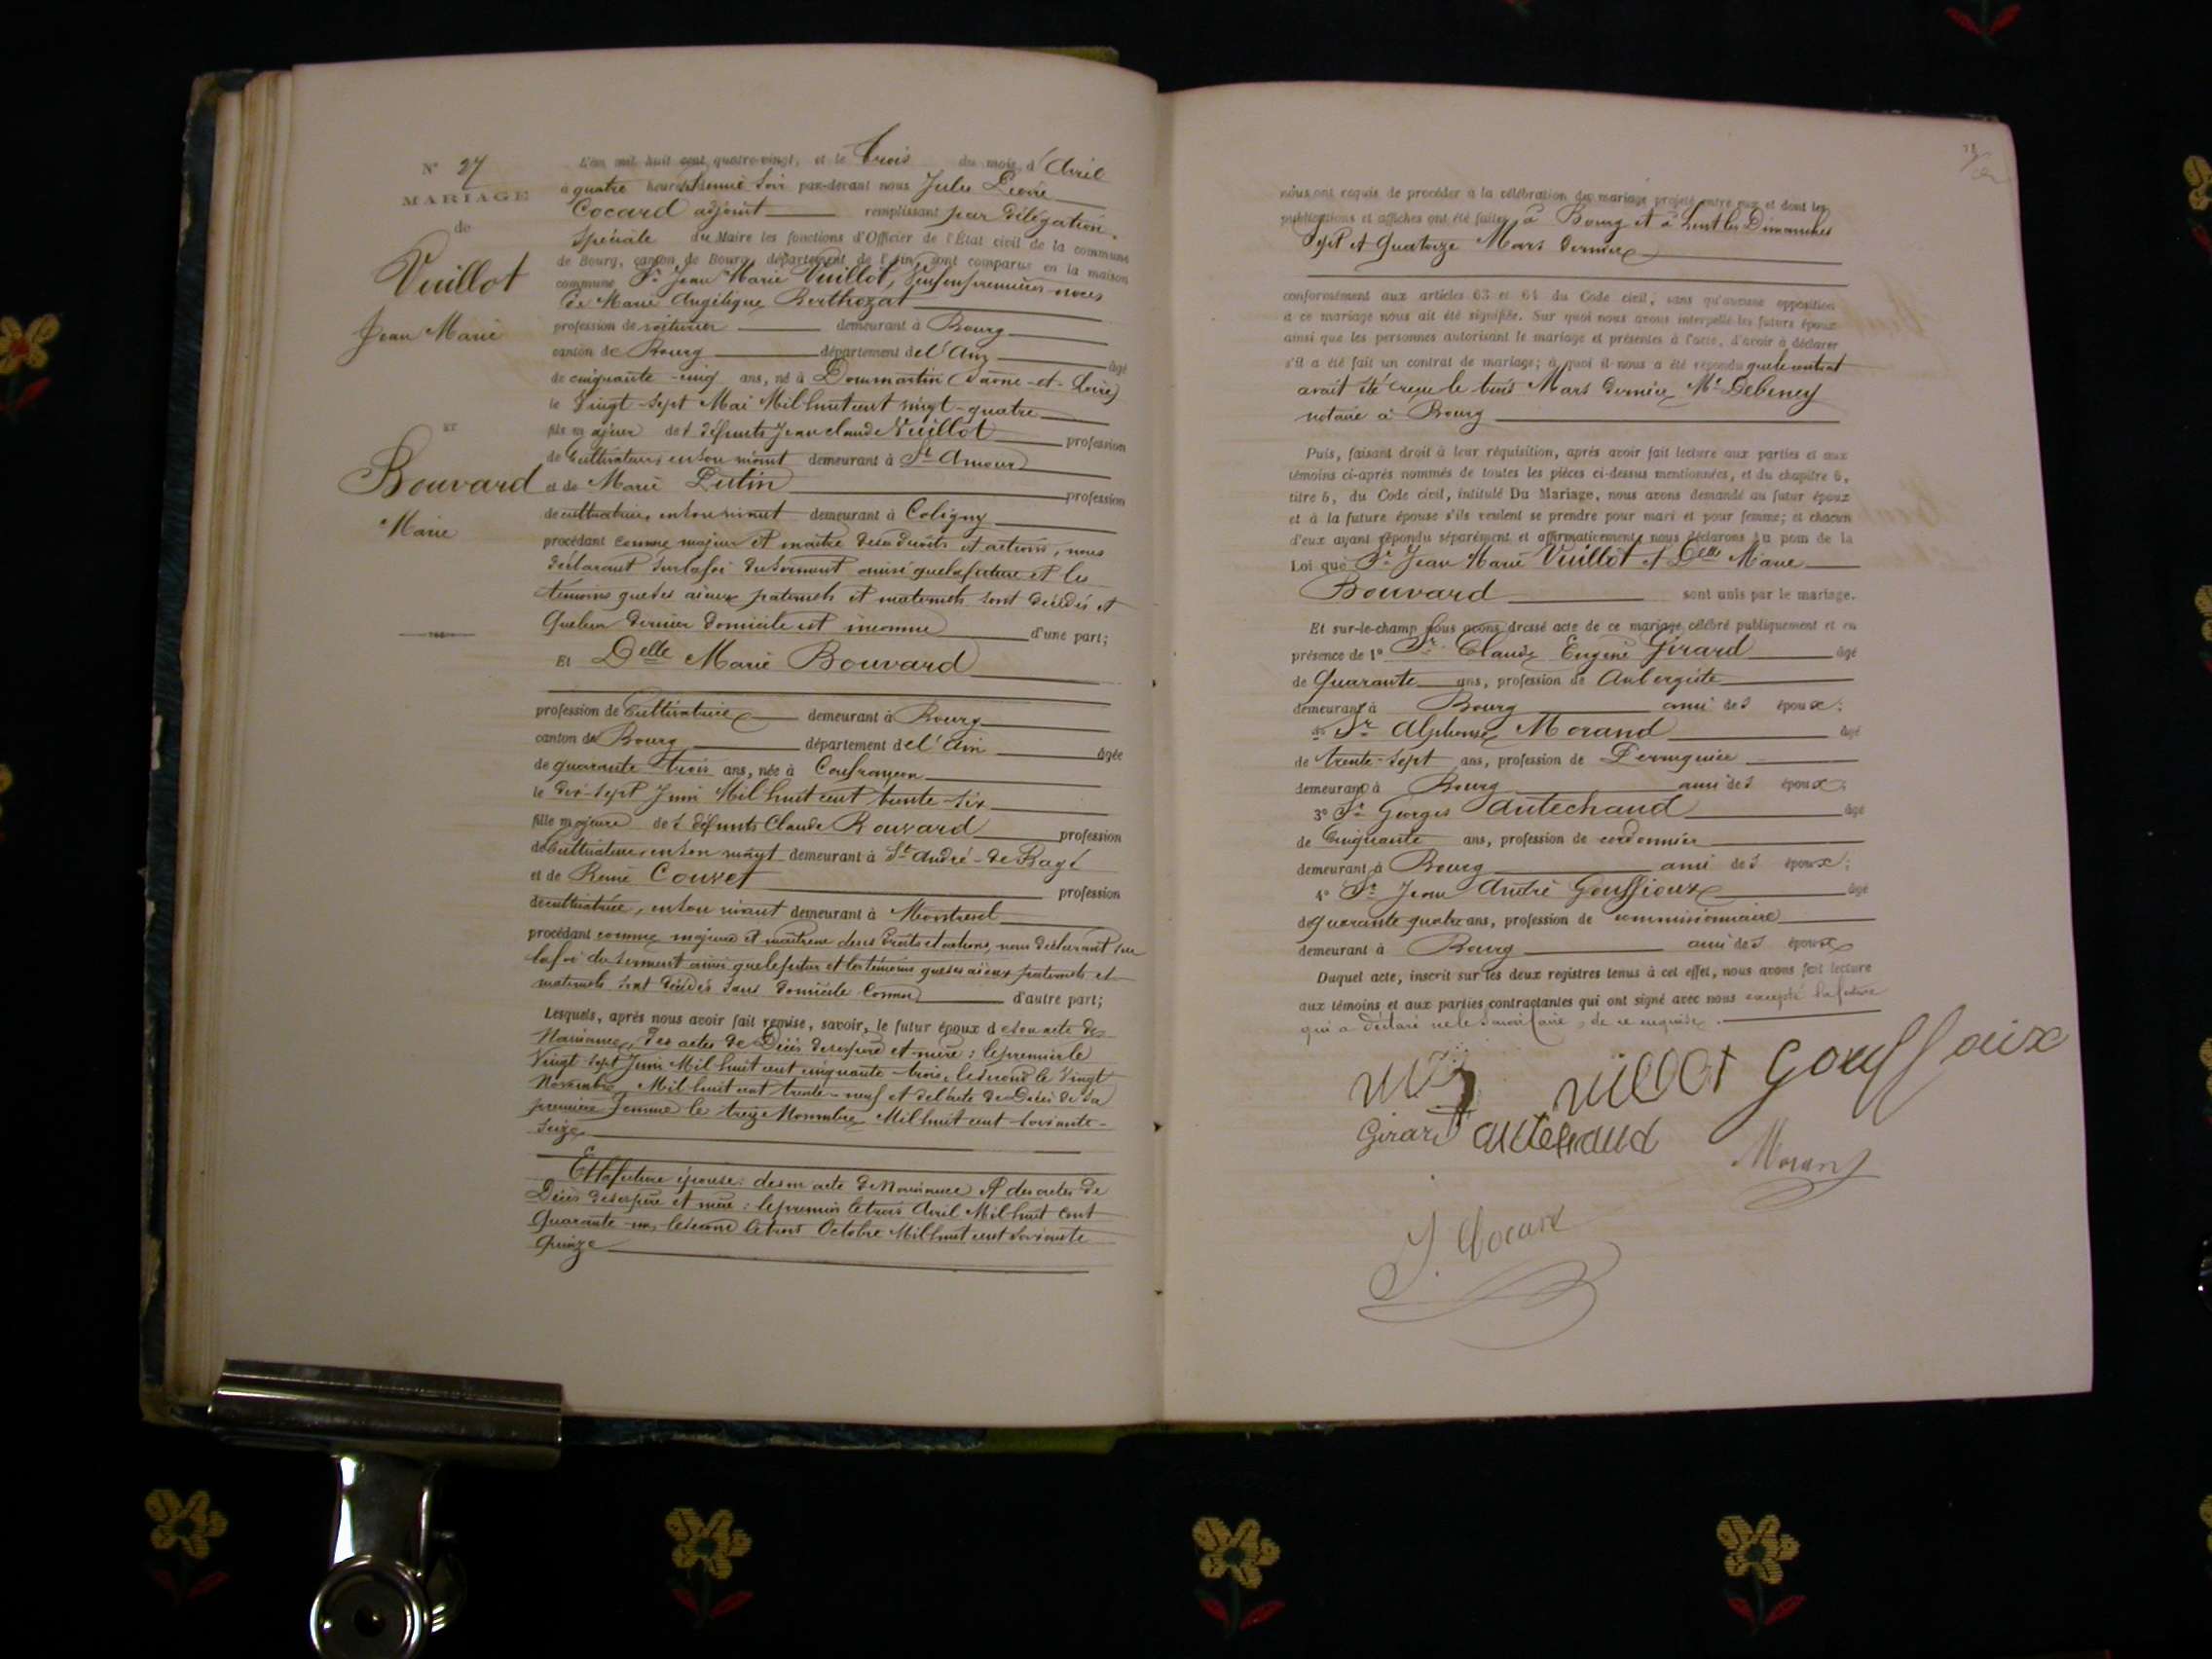 N° 27
MARIAGE
de
Vuillot
Jean Marie
ET
Bouvard
Marie
L'an mil huit cent quatre-vingt, et le trois du mois d'Avril
à quatre heures et demie soir par-devant nous Jules Pierre
Cocard adjoint remplissant par délégation
spéciale du Maire les fonctions d'Officier de l'État civil de la commune
de Bourg, canton de Bourg, département de l'Ain, sont comparus en la maison
commune Sr Jean Marie Vuillot, veuf en premières noces
de Marie Angélique Berthozat
profession de voiturier demeurant à Bourg
canton de Bourg département de l'Ain âgé
de cinquante-cinq ans, né à Dommartin (Saône-et-Loire)
le Vingt-sept Mai Mil huit cent vingt-quatre
fils majeur des défunts Jean Claude Vuillot profession
de Cultivateur, en son vivant demeurant à St Amour
et de Marie profession
de cultivatrice, en son vivant demeurant à Coligny
procédant comme majeur et maître de ses droits et actions, nous
déclarant sur la foi du serment ainsi que la future et les
témoins que ses aïeux paternels et maternels sont décédés et
que leur dernier domicile est inconnu d'une part;
Et Delle Marie Bouvard
profession de Cultivatrice demeurant à Bourg
canton de Bourg département de l'Ain âgée
de quarante trois ans, née à Confrançon
le dix-sept Juin Mil huit cent trente-six
fille majeure des défunts Claude Bouvard profession
de Cultivateur, en son vivant demeurant à St André-de-Bagé
et de Reine Couvet profession
de cultivatrice, en son vivant demeurant à Montrevel
procédant comme majeure et maîtresse de ses droits et actions, nous déclarant sur
la foi du serment ainsi que le futur et les témoins que ses aïeux paternels et
maternels sont décédés sans domicile connu d'autre part;
Lesquels, après nous avoir fait remise, savoir, le futur époux de son acte de
Naissance, des actes de Décès de ses père et mère: le premier le
Vingt-sept Juin Mil huit cent cinquante-trois, le second le Vingt
Novembre Mil huit cent trente-neuf et de l'acte de Décès de sa
première femme le treize Novembre Mil huit cent soixante-
seize
Et la future épouse: de son acte de Naissance et des actes de
Décès de ses père et mère: le premier le trois Avril Mil huit cent
quarante-un, le second le trois Octobre Mil huit cent soixante
quinze
nous ont requis de procéder à la célébration du mariage projeté entre eux et dont les
publications et affiches ont été faites à Bourg et à Lent les Dimanches
Sept et Quatorze Mars dernier
conformément aux articles 63 et 64 du Code civil, sans qu'aucune opposition
à ce mariage nous ait été signifiée. Sur quoi nous avons interpellé les futurs époux
ainsi que les personnes autorisant le mariage et présentes à l'acte, d'avoir à déclarer
s'il a été fait un contrat de mariage; à quoi il nous a été répondu que le contrat
avait été reçu le trois Mars dernier Me Debeney
notaire à Bourg
Puis, faisant droit à leur réquisition, après avoir fait lecture aux parties et aux
témoins ci-après nommés de toutes les pièces ci-dessus mentionnées, et du chapitre 6,
titre 5, du Code civil, intitulé Du Mariage, nous avons demandé au futur époux
et à la future épouse s'ils veulent se prendre pour mari et pour femme; et chacun
d'eux ayant répondu séparément et affirmativement, nous déclarons au nom de la
Loi que Sr Jean Marie Vuillot et Delle Marie
Bouvard sont unis par le mariage.
Et sur-le-champ nous avons dressé acte de ce mariage, célébré publiquement et en
présence de 1° Sr Claude Eugène Girard âgé
de Quarante ans, profession de Aubergiste
demeurant à Bourg ami des époux;
2° Sr Alphonse Morand âgé
de trente-sept ans, profession de Perruquier
demeurant à Bourg ami des époux;
3° Sr Georges Autechaud âgé
de Cinquante ans, profession de cordonnier
demeurant à Bourg ami des époux;
4° Sr Jean André Gouffioux âgé
de quarante quatre ans, profession de commissionnaire
demeurant à Bourg ami des époux
Duquel acte, inscrit sur les deux registres tenus à cet effet, nous avons fait lecture
aux témoins et aux parties contractantes qui ont signé avec nous excepté la future
qui a déclaré ne le savoir faire, de ce enquise.
Girard autechaud
Morand
J. Cocard